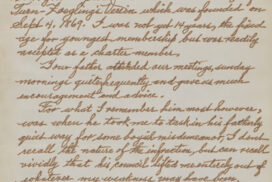 which was founded on
Sept 4, 1869. I was not yet 14 years, the fixed
age for youngest membership but was readily
accepted as a charter member.
Your father attended our meetings, sunday
mornings quite frequently and gave us much
encouragement and advice.
For what I remember him most however,
was when he took me to task in his fatherly
quiet way for some boyish misdemeanor, I don't
recall the nature of the infraction, but can recall
vividly that his council lifts me entirely out of
whatever my weakness may have been